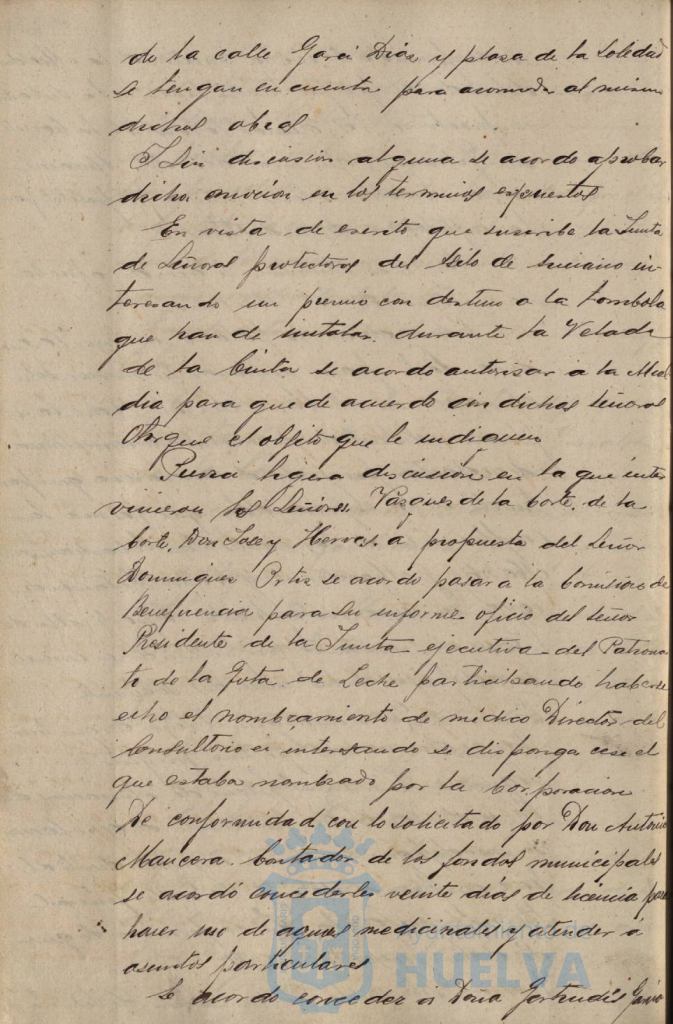 de la calle Garci Diaz y plaza de la Soledad
se tengan en cuenta para acomoda al mismo
dichas obras
Y sin discusion alguna se acordo aprobar
dicha mocion en los terminos expuestos
En vista de escrito que suscribe la Junta
de Señoras protectoras del Asilo de Anciano in-
teresando un premio con destino a la tombola
que han de instalar durante la Velada
de la Cinta se acordo autorizar a la Alcal
dia para que de acuerdo con dichas señoras
otorgue el objeto que le indiquen
Previa ligera discusion en la que inter
vinieron los Señores Vazquez de la Corte, de la
Corte, Don Jose y Hervas, a propuesta del Señor
Dominguez Ortiz se acordo pasar a la Comision de
Beneficencia para su informe oficio del señor
Presidente de la Junta ejecutiva del Patrona
to de la Gota de Leche participando haberse
echo el nombramiento de médico Director del
Consultorio e interesando se disponga cese el
que estaba nombrado por la Corporacion
De conformidad con lo solicitado por Don Antonio
Mancera Contador de los fondos municipales
se acordó concederles veinte dias de licencia para
hacer uso de aguas medicinales y atender á
asuntos particulares
Se acordo conceder a Doña Gertrudis
HUELVA